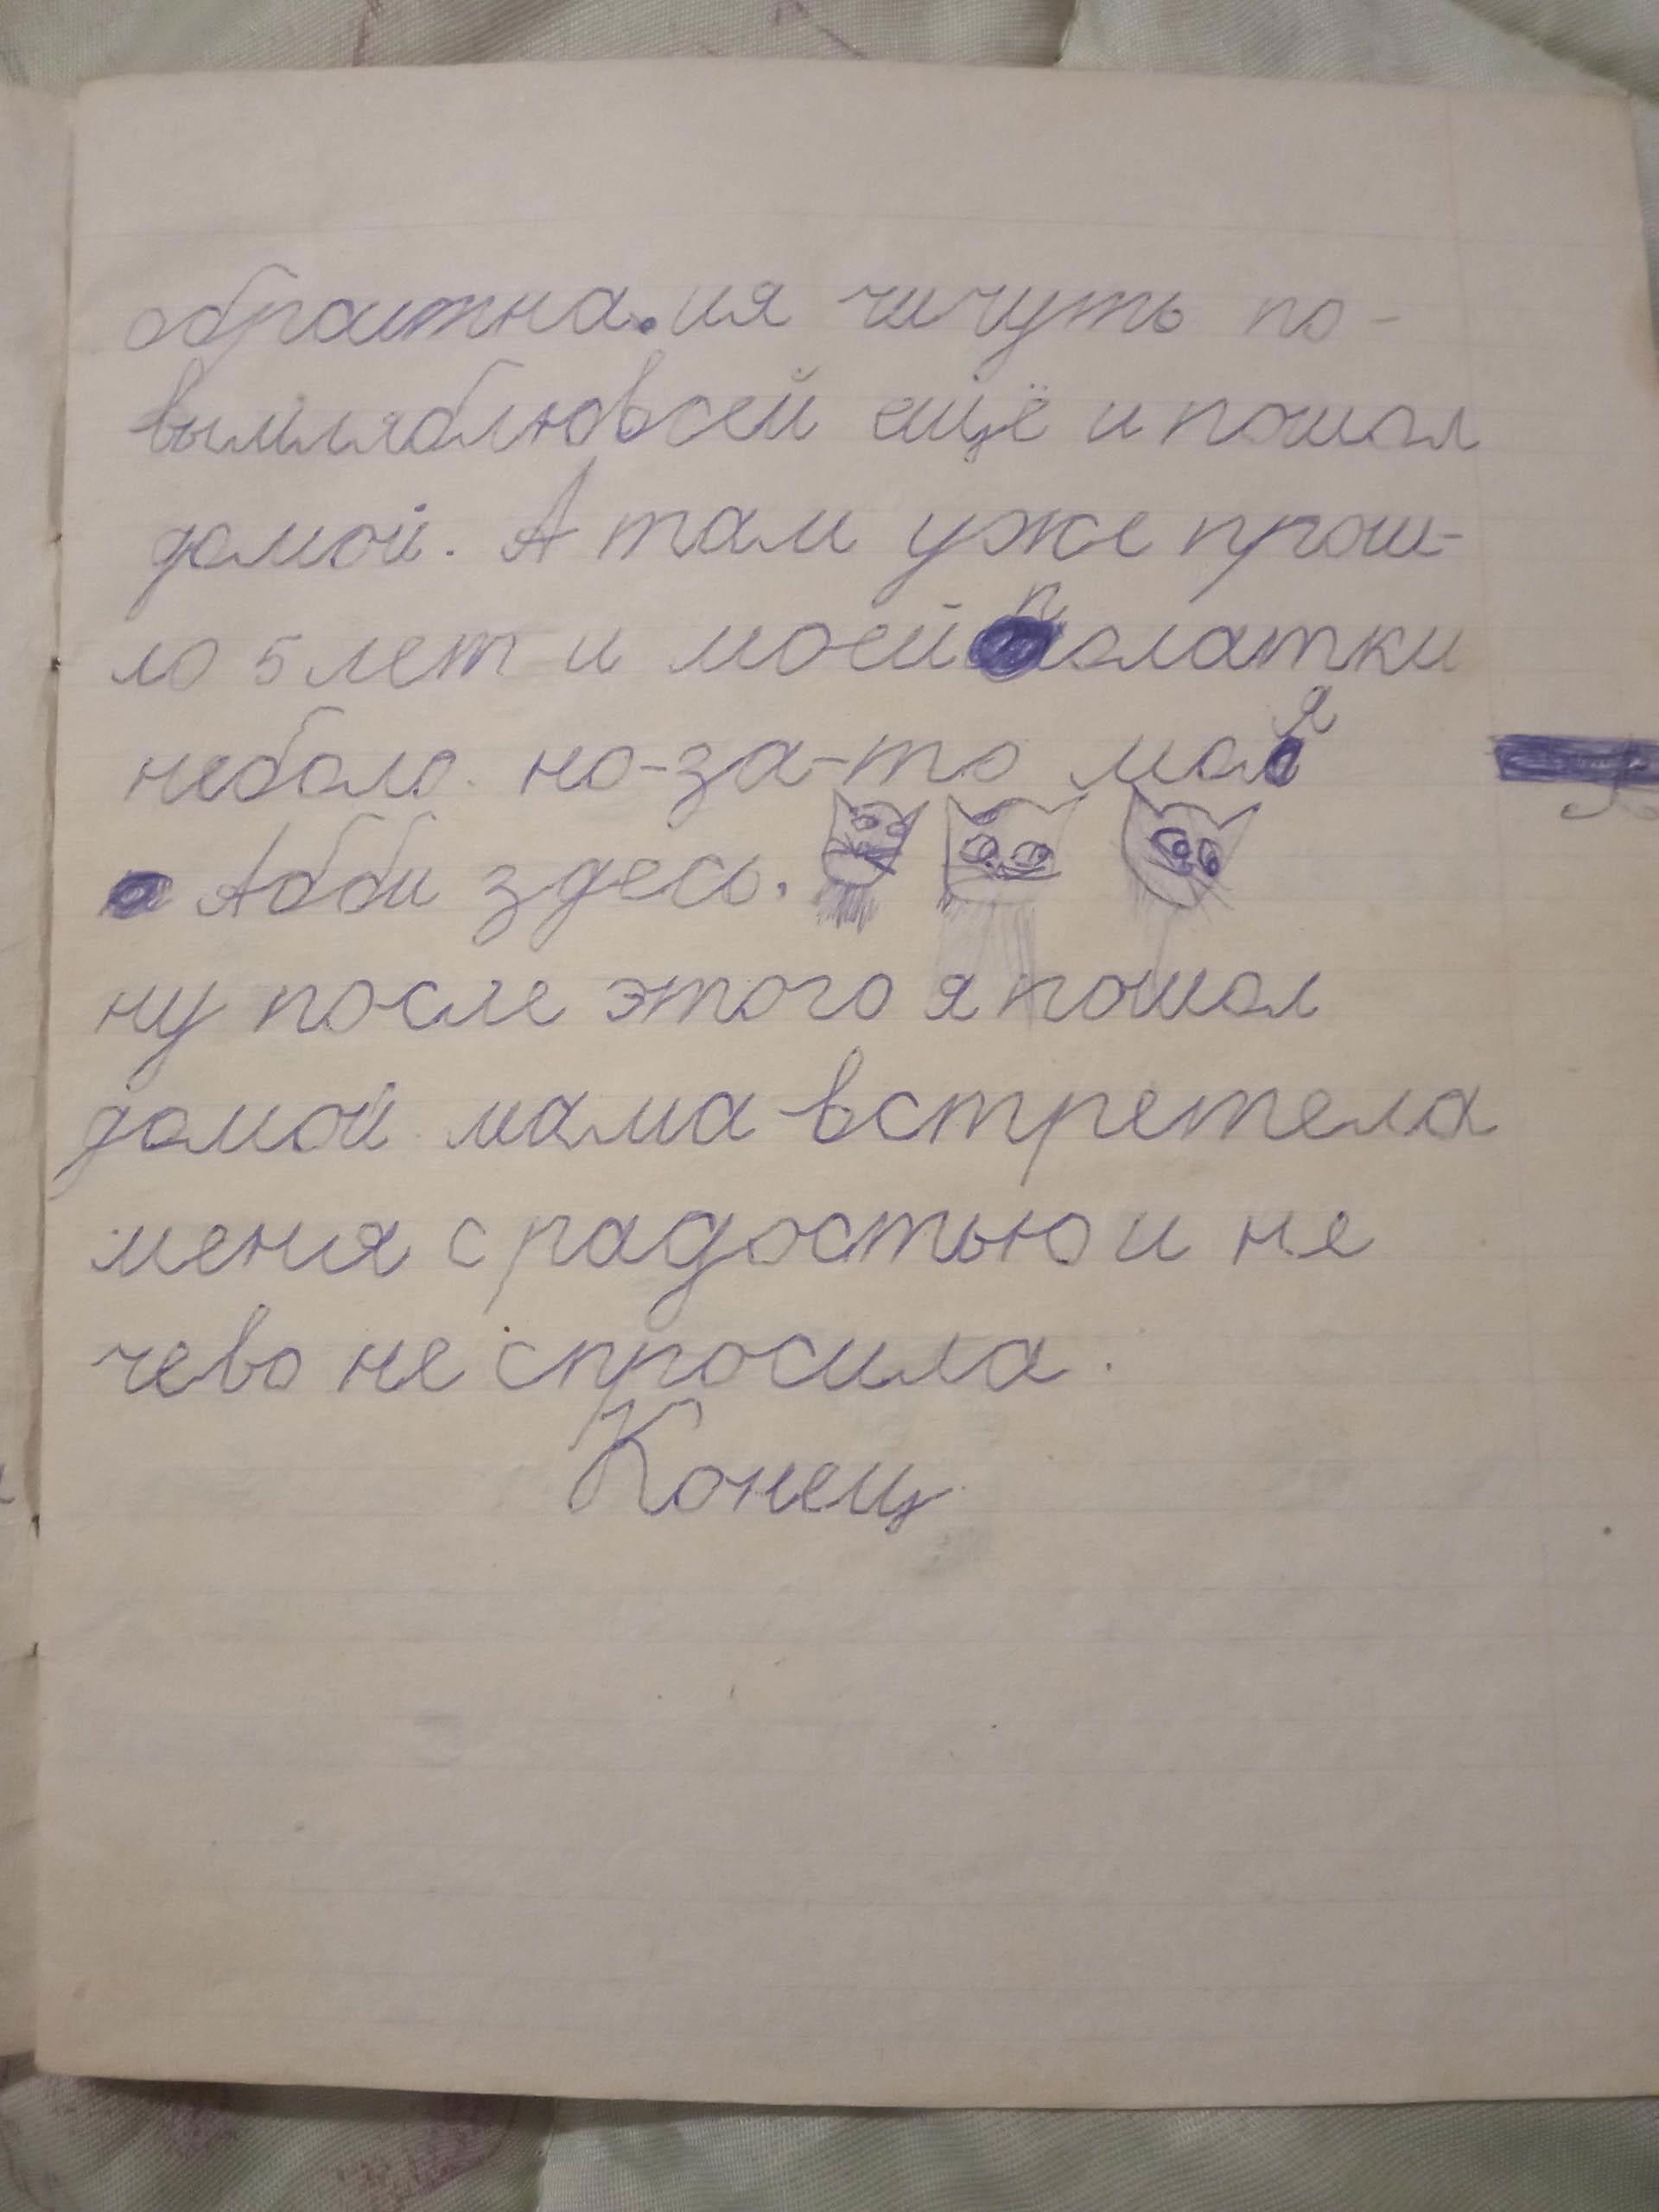 обратна. ия чичуть по-
вымляблювсей ещё и пошол
домой. А там уже прош-
ло 5 лет и моей полатки
небало. но-за-то моя
Абби здесь.
ну после этого я пошол
домой мама встретела
меня с радостью и не
чево не спросила.
Конец